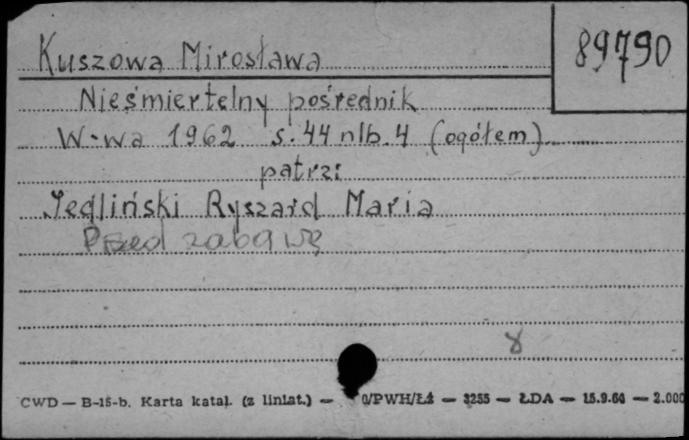 Kuszowa Mirosława
89790
Nieśmiertelny pośrednik
W-wa 1962 s. 44 nlb. 4 (ogółem)
patrz:
Jedliński Ryszard Maria
Przed zabawą
8
CWD — B-15-b. Karta katal. (z liniat.) — 0/PWH/Łź — 3255 — ŁDA — 15.9.60 — 2.000